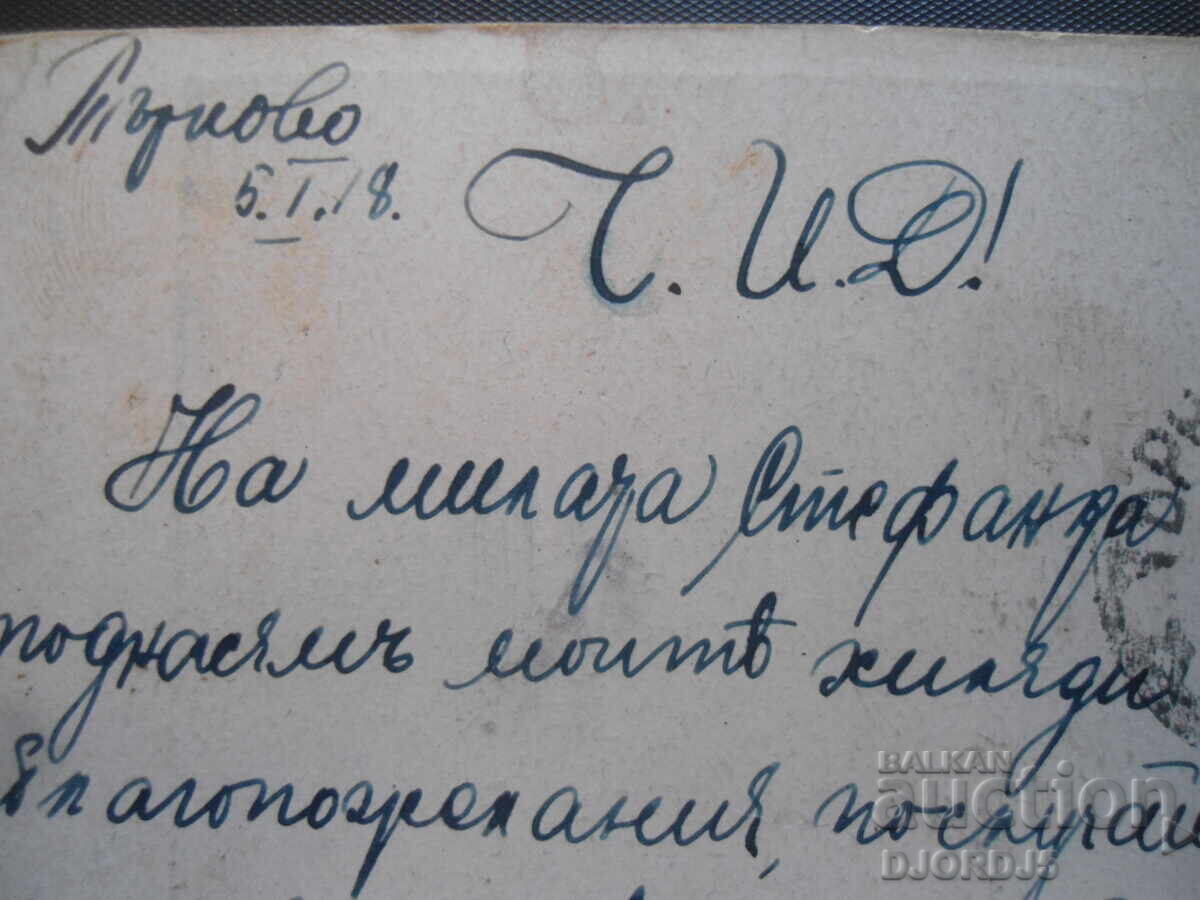 Търново
5.I.18.
Ч. И. Д!
На милата Стефанка
поднасямъ моитѣ хиляди
благопожелания, по случай
BALKAN
auction
DJORDJ5